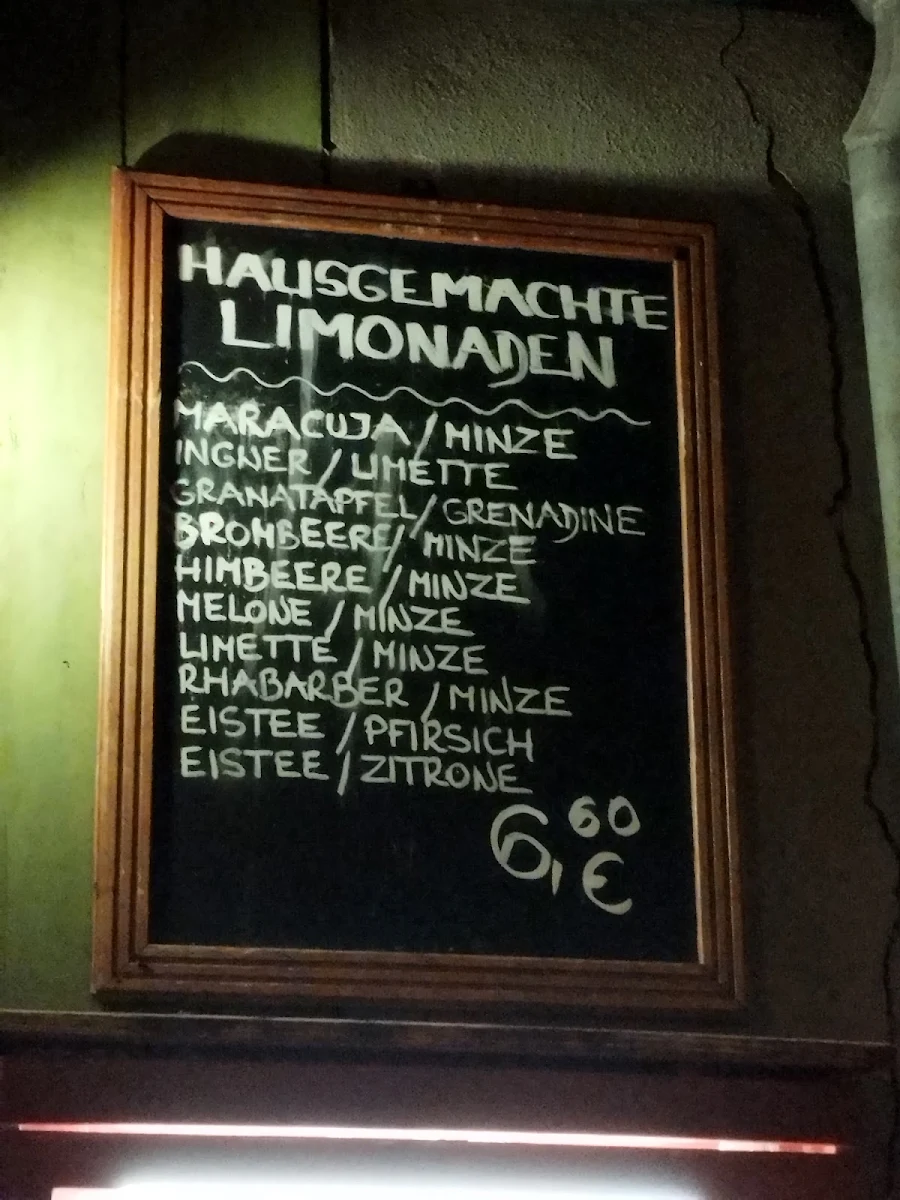 HAUSGEMACHTE
LIMONADEN
MARACUJA / MINZE
INGWER / LIMETTE
GRANATAPFEL / GRENADINE
BROMBEERE / MINZE
HIMBEERE / MINZE
MELONE / MINZE
LIMETTE / MINZE
RHABARBER / MINZE
EISTEE / PFIRSICH
EISTEE / ZITRONE
6,60 €